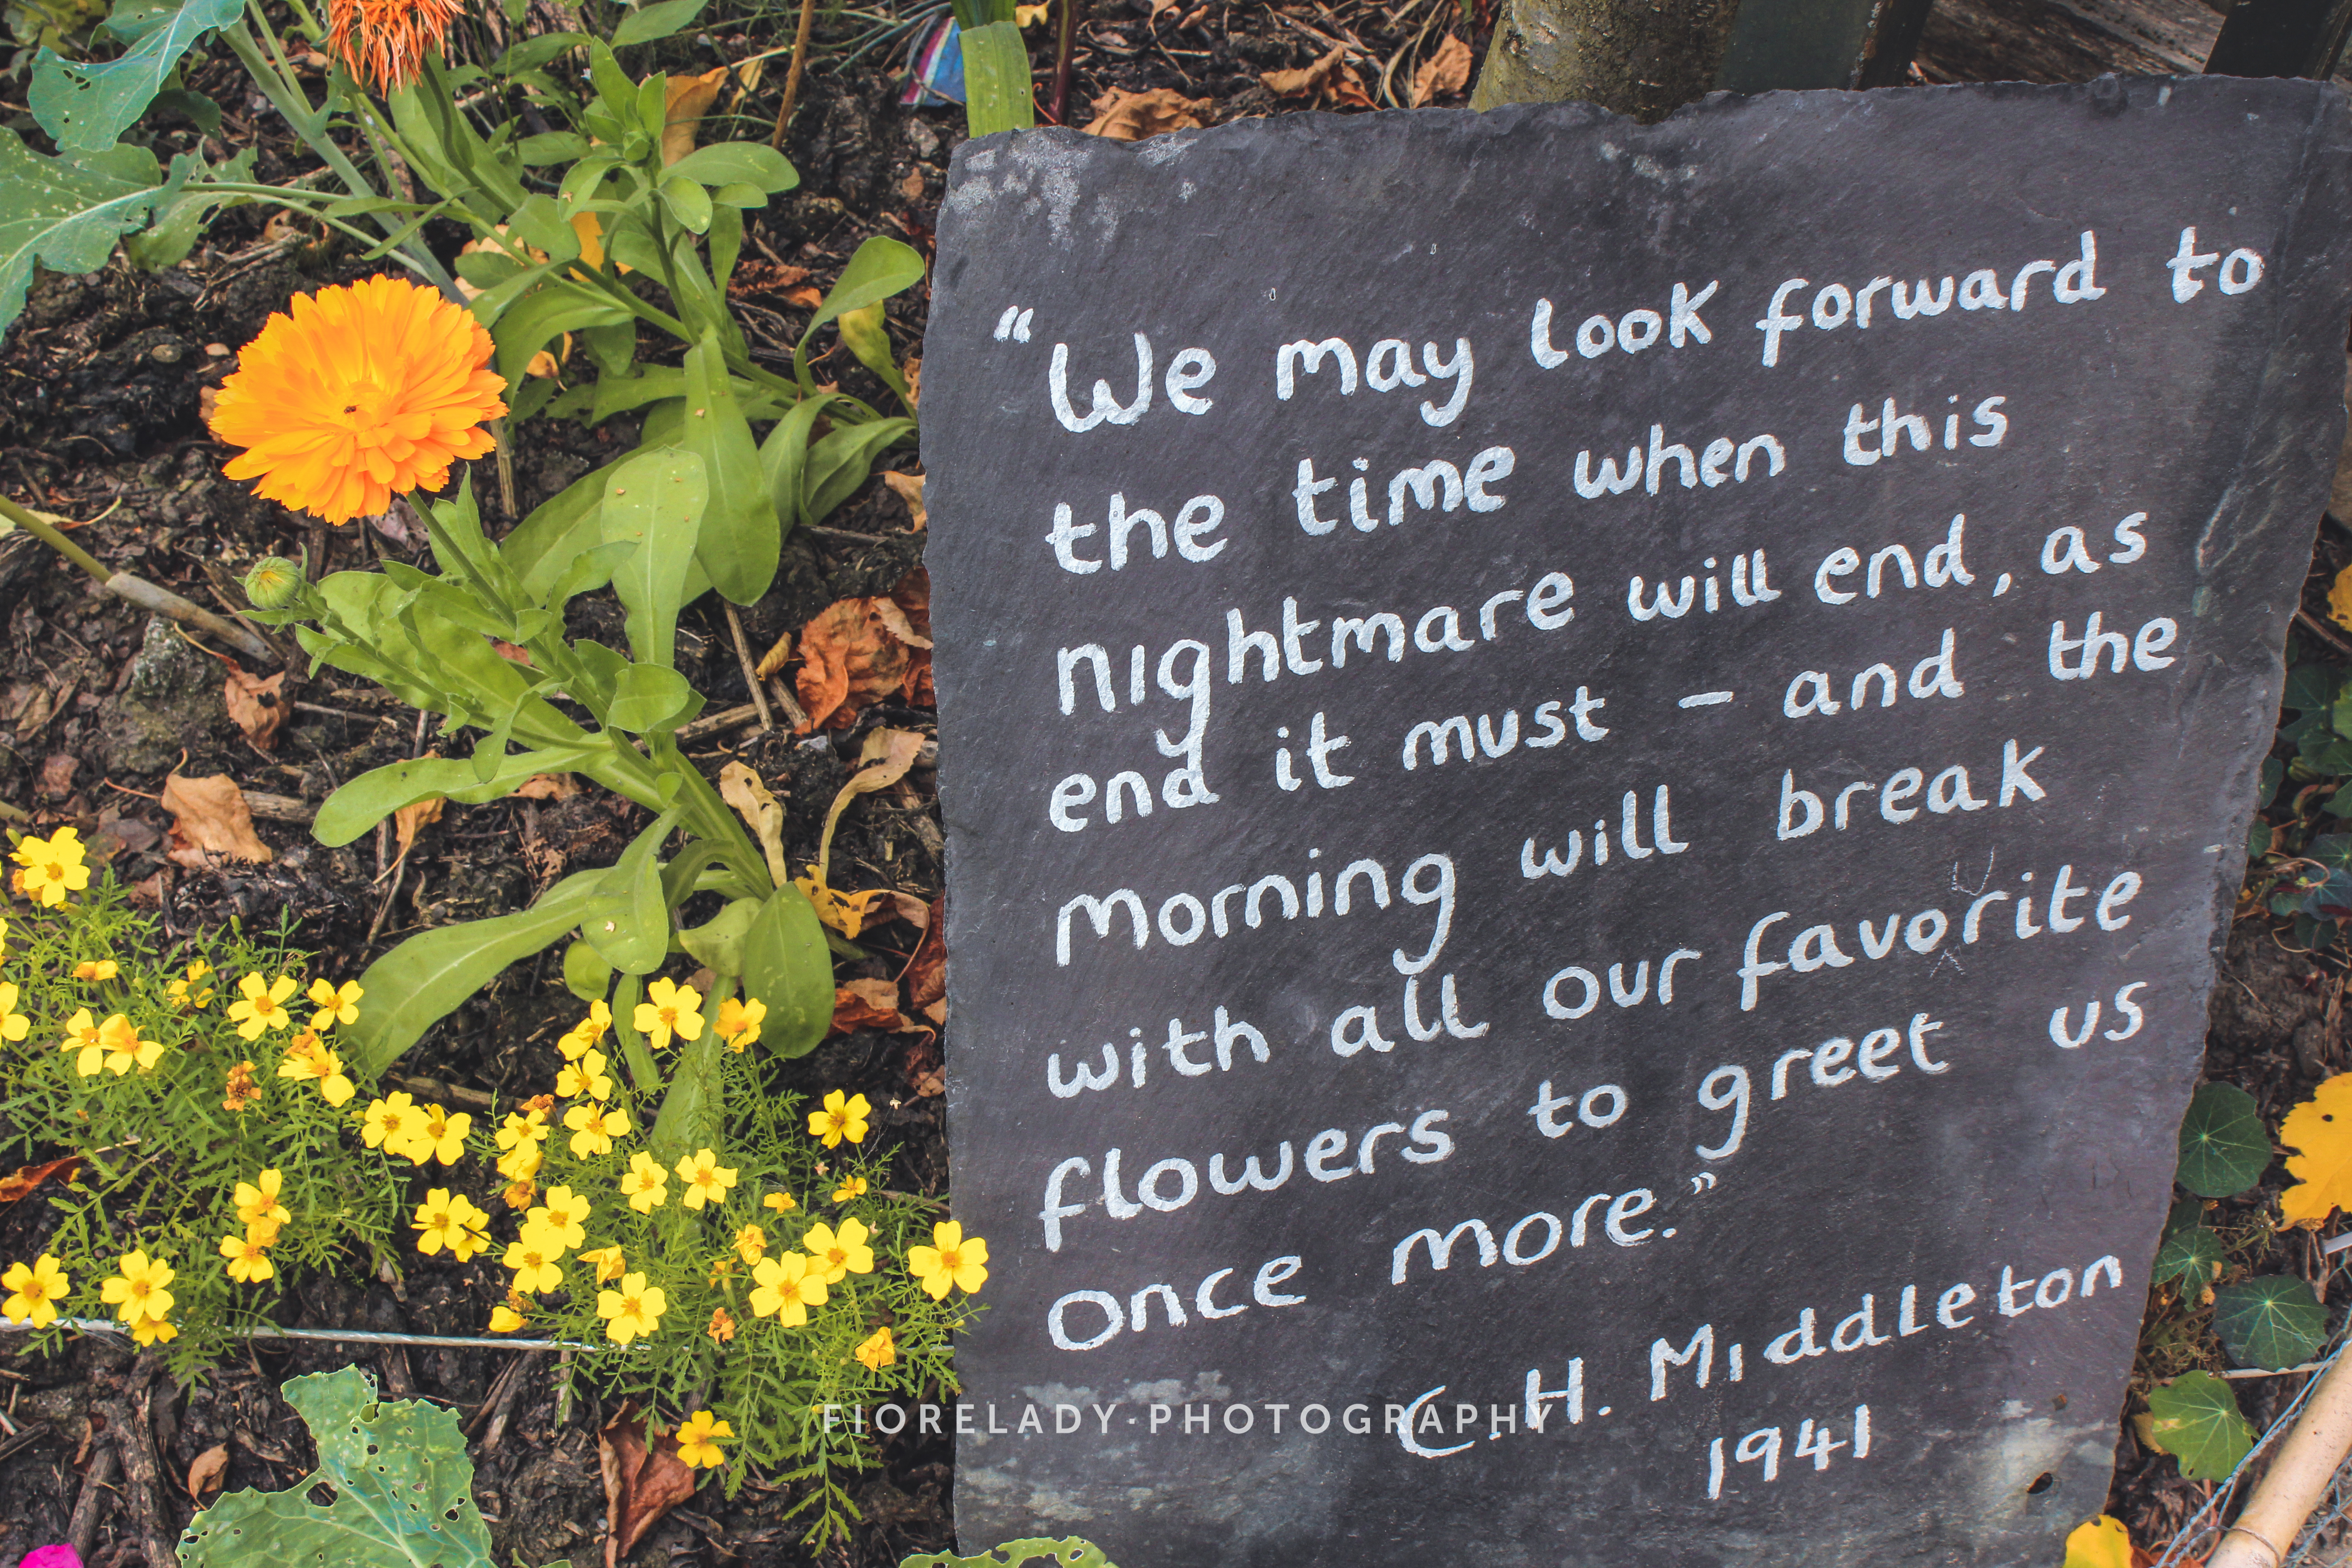 “We may look forward to
the time when this
nightmare will end, as
end it must – and the
morning will break
with all our favorite
flowers to greet us
once more.”
C.H. Middleton
1941
FIORELADY·PHOTOGRAPHY